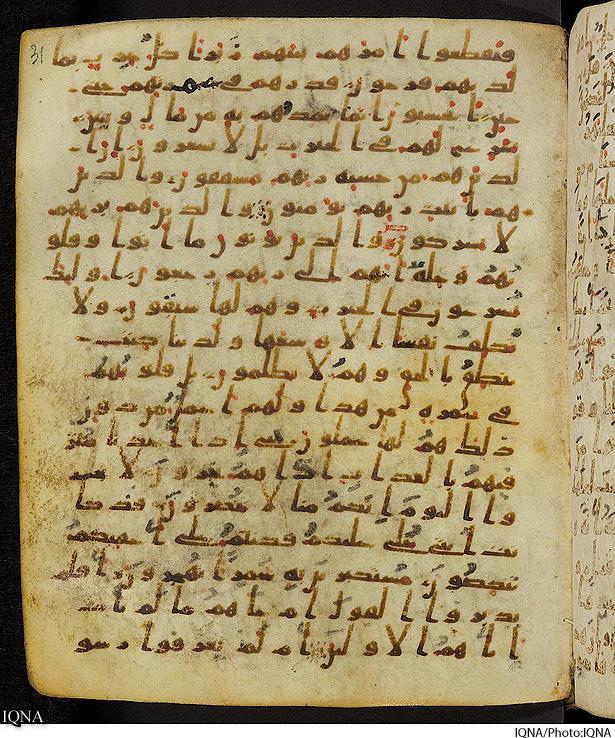 31
فتقطعوا امرهم بينهم زبرا كل حزب بما
لديهم فرحون فذرهم في غمرتهم حتى
حين ايحسبون انما نمدهم به من مال وبنين
نسرع لهم في الخيرت بل لا يشعرون ان ا
لذين هم من خشية ربهم مشفقون والذين
هم بايت ربهم يومنون والذين هم بربهم
لا يشركون والذين يوتون ما اتوا وقلو
بهم وجلة انهم الى ربهم رجعون اوليك
يسرعون في الخيرت وهم لها سبقون ولا
نكلف نفسا الا وسعها ولدينا كتب
ينطق بالحق وهم لا يظلمون بل قلوبهم
في غمرة من هذا ولهم اعمل من دون
ذلك هم لها عملون حتى اذا اخذنا متر
فيهم بالعذاب اذا هم يجرون لا تجر
وا اليوم انكم منا لا تنصرون قد كا
نت ايتي تتلى عليكم فكنتم على اعقبكم
تنكصون مستكبرين به سمرا تهجرون افلم
يدبروا القول ام جاهم ما لم يات
اباهم الاولين ام لم يعرفوا رسو
IQNA
IQNA/Photo:IQNA